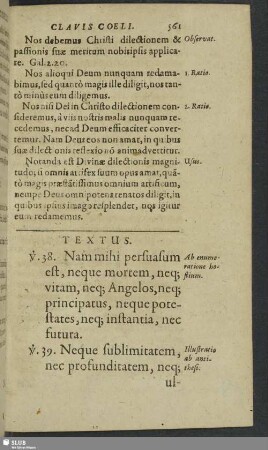 CLAVIS COELI. 561
Nos debemus Christi dilectionem & Observat.
passionis suæ meritum nobisipsis applica-
re. Gal. 2. 20.
Nos alioqui Deum nunquam redama- 1. Ratio.
bimus, sed quantò magis ille diligit, nos tan-
tò minùs eum diligemus.
Nos nisi Dei in Christo dilectionem con- 2. Ratio.
sideremus, à viis nostris malis nunquam re-
cedemus, nec ad Deum efficaciter conver-
temur. Nam Deus eos non amat, in quibus
suæ dilectionis reflexionē nō animadvertit.
Notanda est Divinæ dilectionis magni- Usus.
tudo, ū omnis artifex suum opus amat, quā-
tò magis præstantissimus omnium artificum,
nempe Deus omnipotens renatos diligit, in
quibus ipsius imago resplendet, nos igitur
eum redamemus.
TEXTUS.
ỳ. 38. Nam mihi persuasum Ab enume-
est, neque mortem, neq; ratione ho-
vitam, neq; Angelos, neq; stium.
principatus, neque pote-
states, neq; instantia, nec
futura.
ỳ. 39. Neque sublimitatem, Illustratio
nec profunditatem, neq; ab anti-
thesi.
ul-
SLUB